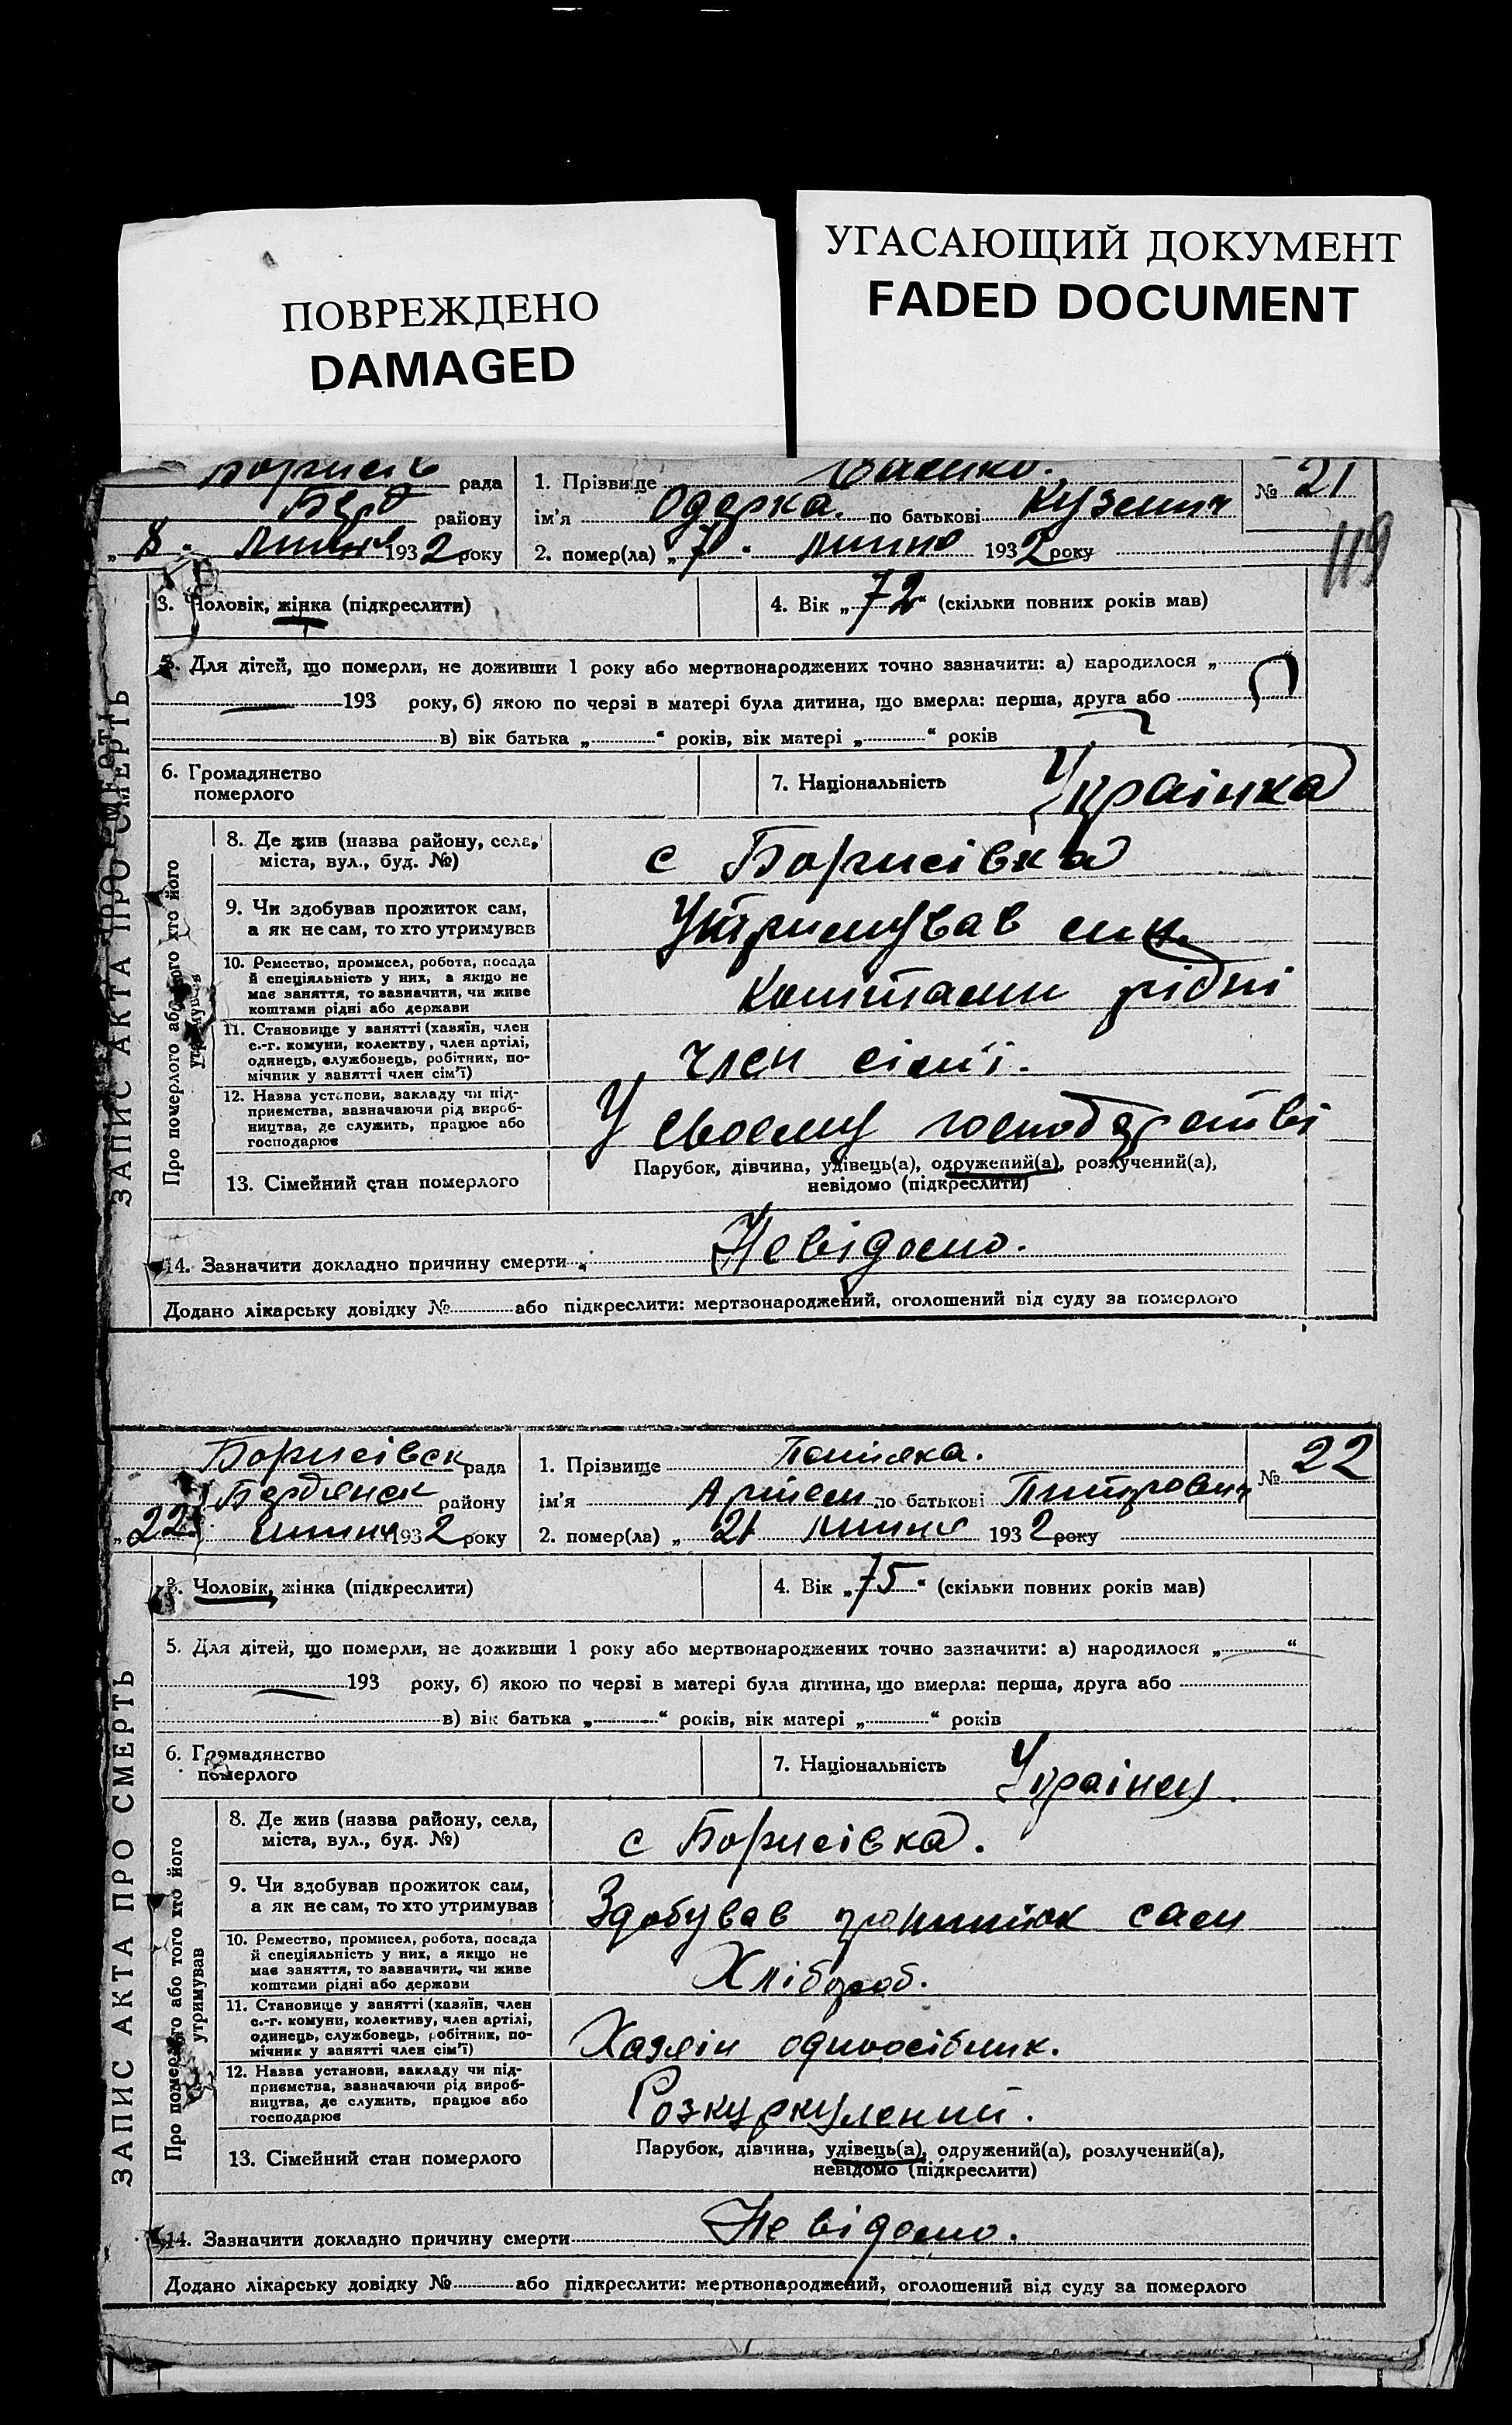 ПОВРЕЖДЕНО
DAMAGED
УГАСАЮЩИЙ ДОКУМЕНТ
FADED DOCUMENT
рада
1. Прізвище
№ 21
Берд району
ім'я Одарка. по батькові Кузємич
119
„8" липня 1932 року
2. помер(ла) „7" липня 1932 року
ЗАПИС АКТА ПРО СМЕРТЬ
3. Чоловік, жінка (підкреслити)
4. Вік „72" (скільки повних років мав)
5. Для дітей, що померли, не доживши 1 року або мертвонароджених точно зазначити: а) народилося „
193 року, б) якою по черзі в матері була дитина, що вмерла: перша, друга або
в) вік батька „ “ років, вік матері „ “ років
6. Громадянство
померлого
7. Національність Українка
Про померлого або того хто його
утримував
8. Де жив (назва району, села,
міста, вул., буд. №)
с Борисівка
9. Чи здобував прожиток сам,
а як не сам, то хто утримував
Утримував син
10. Ремество, промисел, робота, посада
й спеціяльність у них, а якщо не
має заняття, то зазначити, чи живе
коштами рідні або держави
Коштами рідні
11. Становище у занятті (хазяїн, член
с.-г. комуни, колективу, член артілі,
одинець, службовець, робітник, по-
мічник у занятті член сім'ї)
член сім'ї.
12. Назва установи, закладу чи під-
приємства, зазначаючи рід вироб-
ництва, де служить, працює або
господарює
У своєму господарстві
13. Сімейний стан померлого
Парубок, дівчина, удівець(а), одружений(а), розлучений(а),
невідомо (підкреслити)
14. Зазначити докладно причину смерти Невідомо.
Додано лікарську довідку № або підкреслити: мертвонароджений, оголошений від суду за померлого
Борисівск рада
1. Прізвище
№ 22
Бердянск району
ім'я Артем по батькові Питрович
„22" липня 1932 року
2. помер(ла) „ 21 липня 1932 року
ЗАПИС АКТА ПРО СМЕРТЬ
3. Чоловік, жінка (підкреслити)
4. Вік „75“ (скільки повних років мав)
5. Для дітей, що померли, не доживши 1 року або мертвонароджених точно зазначити: а) народилося „ “
193 року, б) якою по черзі в матері була дитина, що вмерла: перша, друга або
в) вік батька „ “ років, вік матері „ “ років
6. Громадянство
померлого
7. Національність Українец.
Про померлого або того хто його
утримував
8. Де жив (назва району, села,
міста, вул., буд. №)
с Борисівка.
9. Чи здобував прожиток сам,
а як не сам, то хто утримував
Здобував прожиток сам
10. Ремество, промисел, робота, посада
й спеціяльність у них, а якщо не
має заняття, то зазначити, чи живе
коштами рідні або держави
Хлібороб.
11. Становище у занятті (хазяїн, член
с.-г. комуни, колективу, член артілі,
одинець, службовець, робітник, по-
мічник у занятті член сім'ї)
Хазяін одноосібник.
12. Назва установи, закладу чи під-
приємства, зазначаючи рід вироб-
ництва, де служить, працює або
господарює
Розкуркулений.
13. Сімейний стан померлого
Парубок, дівчина, удівець(а), одружений(а), розлучений(а),
невідомо (підкреслити)
14. Зазначити докладно причину смерти Невідомо.
Додано лікарську довідку № або підкреслити: мертвонароджений, оголошений від суду за померлого